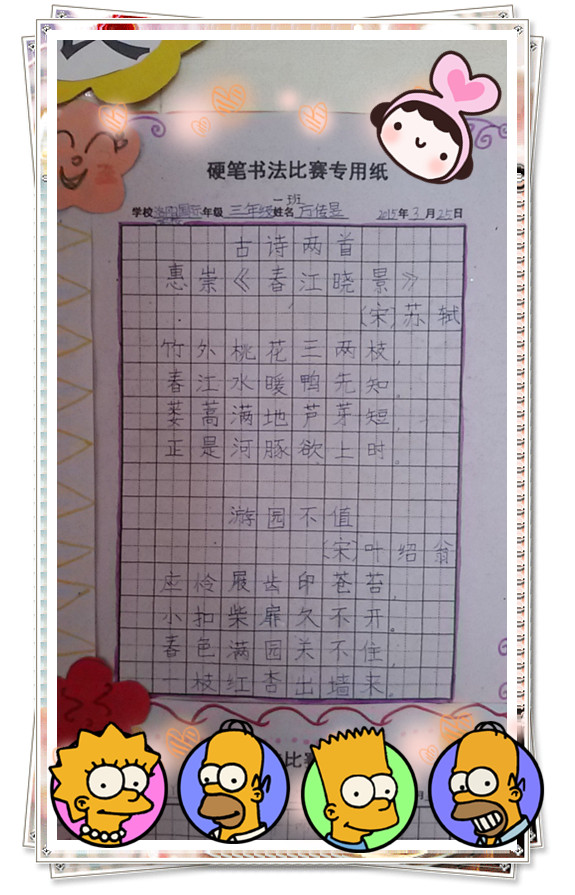 硬笔书法比赛专用纸
一班
学校 国际 年级 三年级 姓名 万佳昱 2015年3月25日
古诗两首
惠崇《春江晓景》
(宋)苏轼
竹外桃花三两枝,
春江水暖鸭先知。
蒌蒿满地芦芽短,
正是河豚欲上时。
游园不值
(宋)叶绍翁
应怜屐齿印苍苔,
小扣柴扉久不开。
春色满园关不住,
一枝红杏出墙来。
比